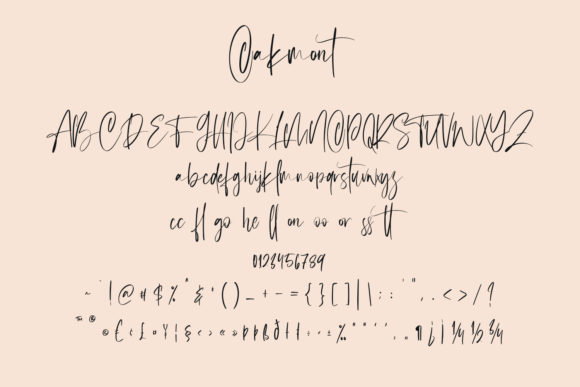 Oakmont
ABCDEFGHIJKLMNOPQRSTUVWXYZ
abcdefghijklmnopqrstuvwxyz
cc fl go he ll on oo or ss tt
0123456789
~ ` ! @ # $ % ^ & * ( ) _ + - = { } [ ] | \ : ; " ' , . < > / ?
™ ® © € ¢ £ ¤ ¥ ¦ § ‹ › « » þ Þ ß ð ‰ ¶ ¿ ¡ ¼ ½ ¾